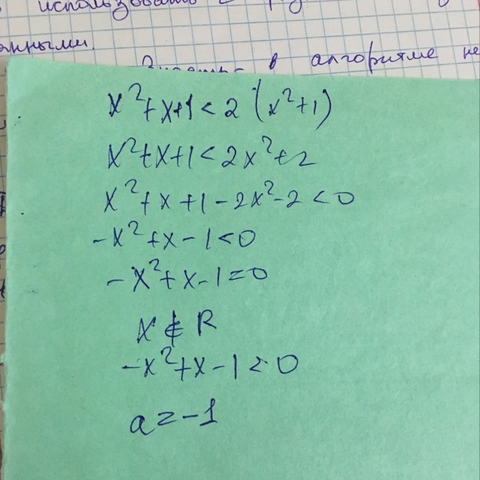 использовать
данными.
в алгоритме не
x²+x+1<2(x²+1)
x²+x+1<2x²+2
x²+x+1-2x²-2<0
-x²+x-1<0
-x²+x-1=0
x∉R
-x²+x-1<0
a=-1